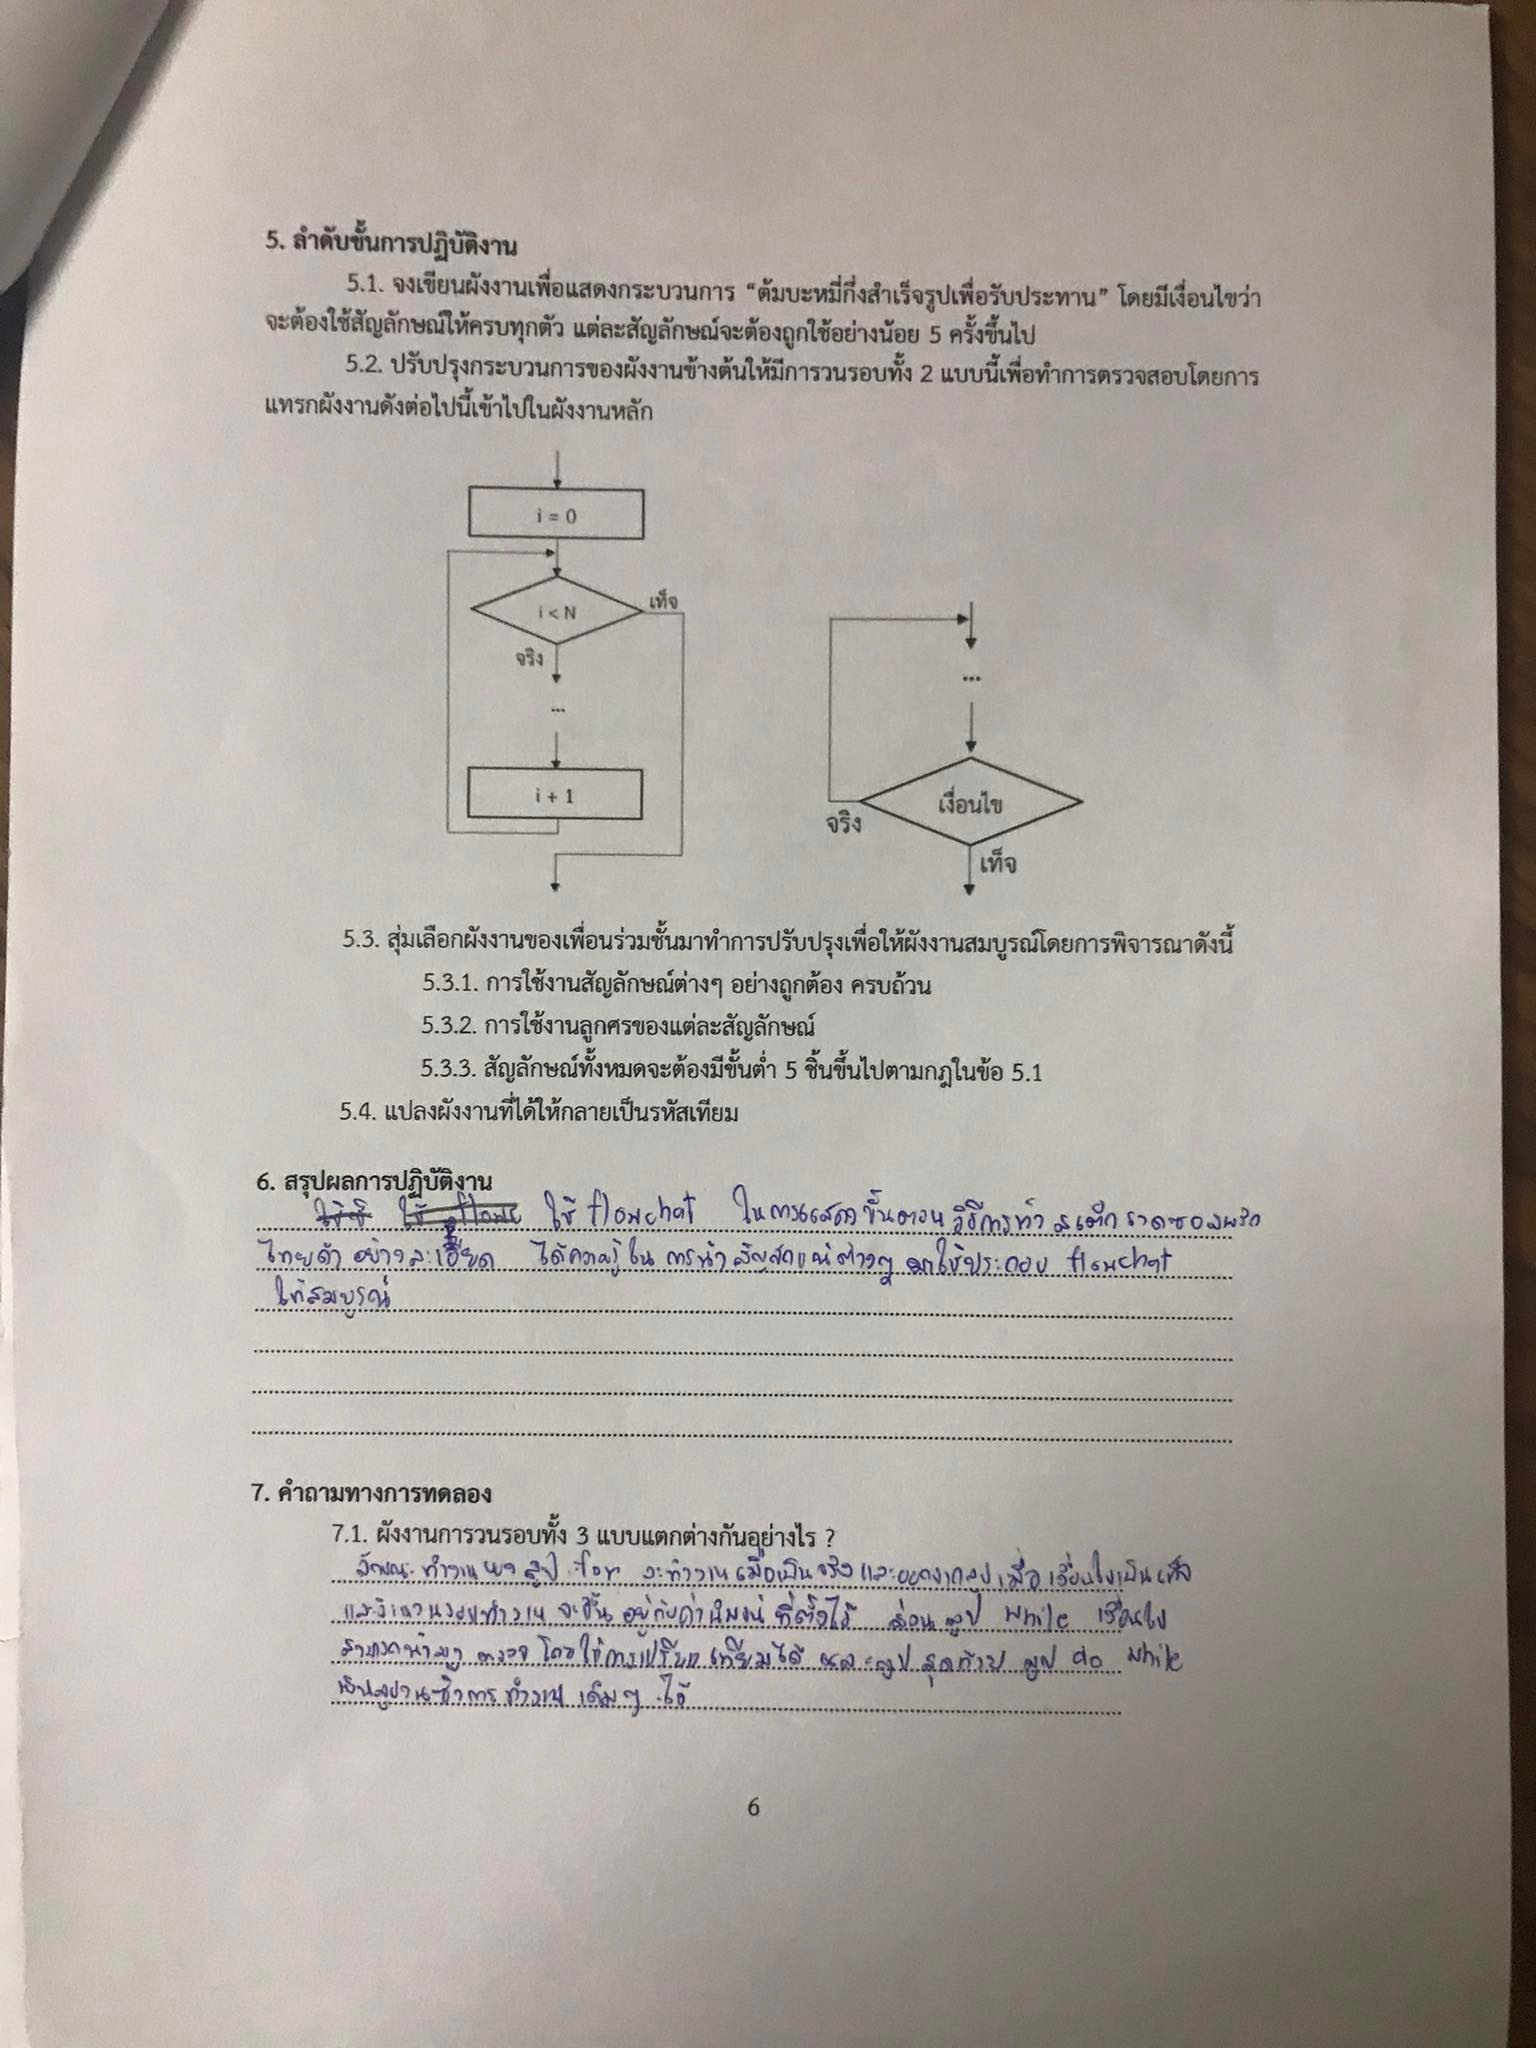 5. ลำดับขั้นการปฏิบัติงาน
5.1. จงเขียนผังงานเพื่อแสดงกระบวนการ “ต้มบะหมี่กึ่งสำเร็จรูปเพื่อรับประทาน” โดยมีเงื่อนไขว่า
จะต้องใช้สัญลักษณ์ให้ครบทุกตัว แต่ละสัญลักษณ์จะต้องถูกใช้อย่างน้อย 5 ครั้งขึ้นไป
5.2. ปรับปรุงกระบวนการของผังงานข้างต้นให้มีการวนรอบทั้ง 2 แบบนี้เพื่อทำการตรวจสอบโดยการ
แทรกผังงานดังต่อไปนี้เข้าไปในผังงานหลัก
i = 0
i < N
เท็จ
จริง
...
i + 1
...
เงื่อนไข
จริง
เท็จ
5.3. สุ่มเลือกผังงานของเพื่อนร่วมชั้นมาทำการปรับปรุงเพื่อให้ผังงานสมบูรณ์โดยการพิจารณาดังนี้
5.3.1. การใช้งานสัญลักษณ์ต่างๆ อย่างถูกต้อง ครบถ้วน
5.3.2. การใช้งานลูกศรของแต่ละสัญลักษณ์
5.3.3. สัญลักษณ์ทั้งหมดจะต้องมีขั้นต่ำ 5 ชิ้นขึ้นไปตามกฎในข้อ 5.1
5.4. แปลงผังงานที่ได้ให้กลายเป็นรหัสเทียม
6. สรุปผลการปฏิบัติงาน
ใช้ flowchat ในการแสดงขั้นตอน วิธีการทำ สเต็ก ราดซอสพริก
ไทยดำ อย่างละเอียด ได้ความรู้ใน การนำ ต่างๆ มาใช้ประกอบ flowchat
ให้สมบูรณ์
7. คำถามทางการทดลอง
7.1. ผังงานการวนรอบทั้ง 3 แบบแตกต่างกันอย่างไร ?
ลักษณะทำงาน ลูป for จะทำงานเมื่อเป็นจริง และออกจากลูปเมื่อ เงื่อนไขเป็นเท็จ
และจำนวนรอบทำงาน จะขึ้น อยู่กับค่า ที่ตั้งไว้ ส่วน ลูป while เงื่อนไข
ตรวจ โดยใช้การเปรียบเทียบได้ และลูป สุดท้าย ลูป do while
การทำงาน เดิมๆ ได้
6